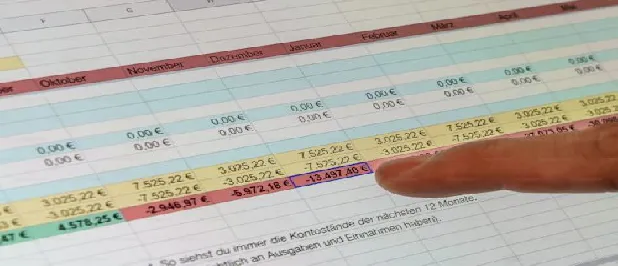 F G
Oktober November Dezember Januar Februar März April Mai
0,00 € 0,00 € 0,00 € 0,00 € 0,00 € 0,00 € 0,00 € 0,00 €
0,00 € 0,00 € 0,00 € 0,00 € 0,00 € 0,00 € 0,00 € 0,00 €
3.025,22 € 7.525,22 € 3.025,22 € 7.525,22 € 3.025,22 € 7.525,22 € 3.025,22 € 3.025,22
-3.025,22 € -7.525,22 € -3.025,22 € -7.525,22 € -3.025,22 € -7.525,22 € -3.025,22 € -3.025,22
47 € 4.578,25 € -2.946,97 € -5.972,18 € -13.497,40 €
So siehst du immer die Kontostände der nächsten 12 Monate.
an Ausgaben und Einnahmen hältst.